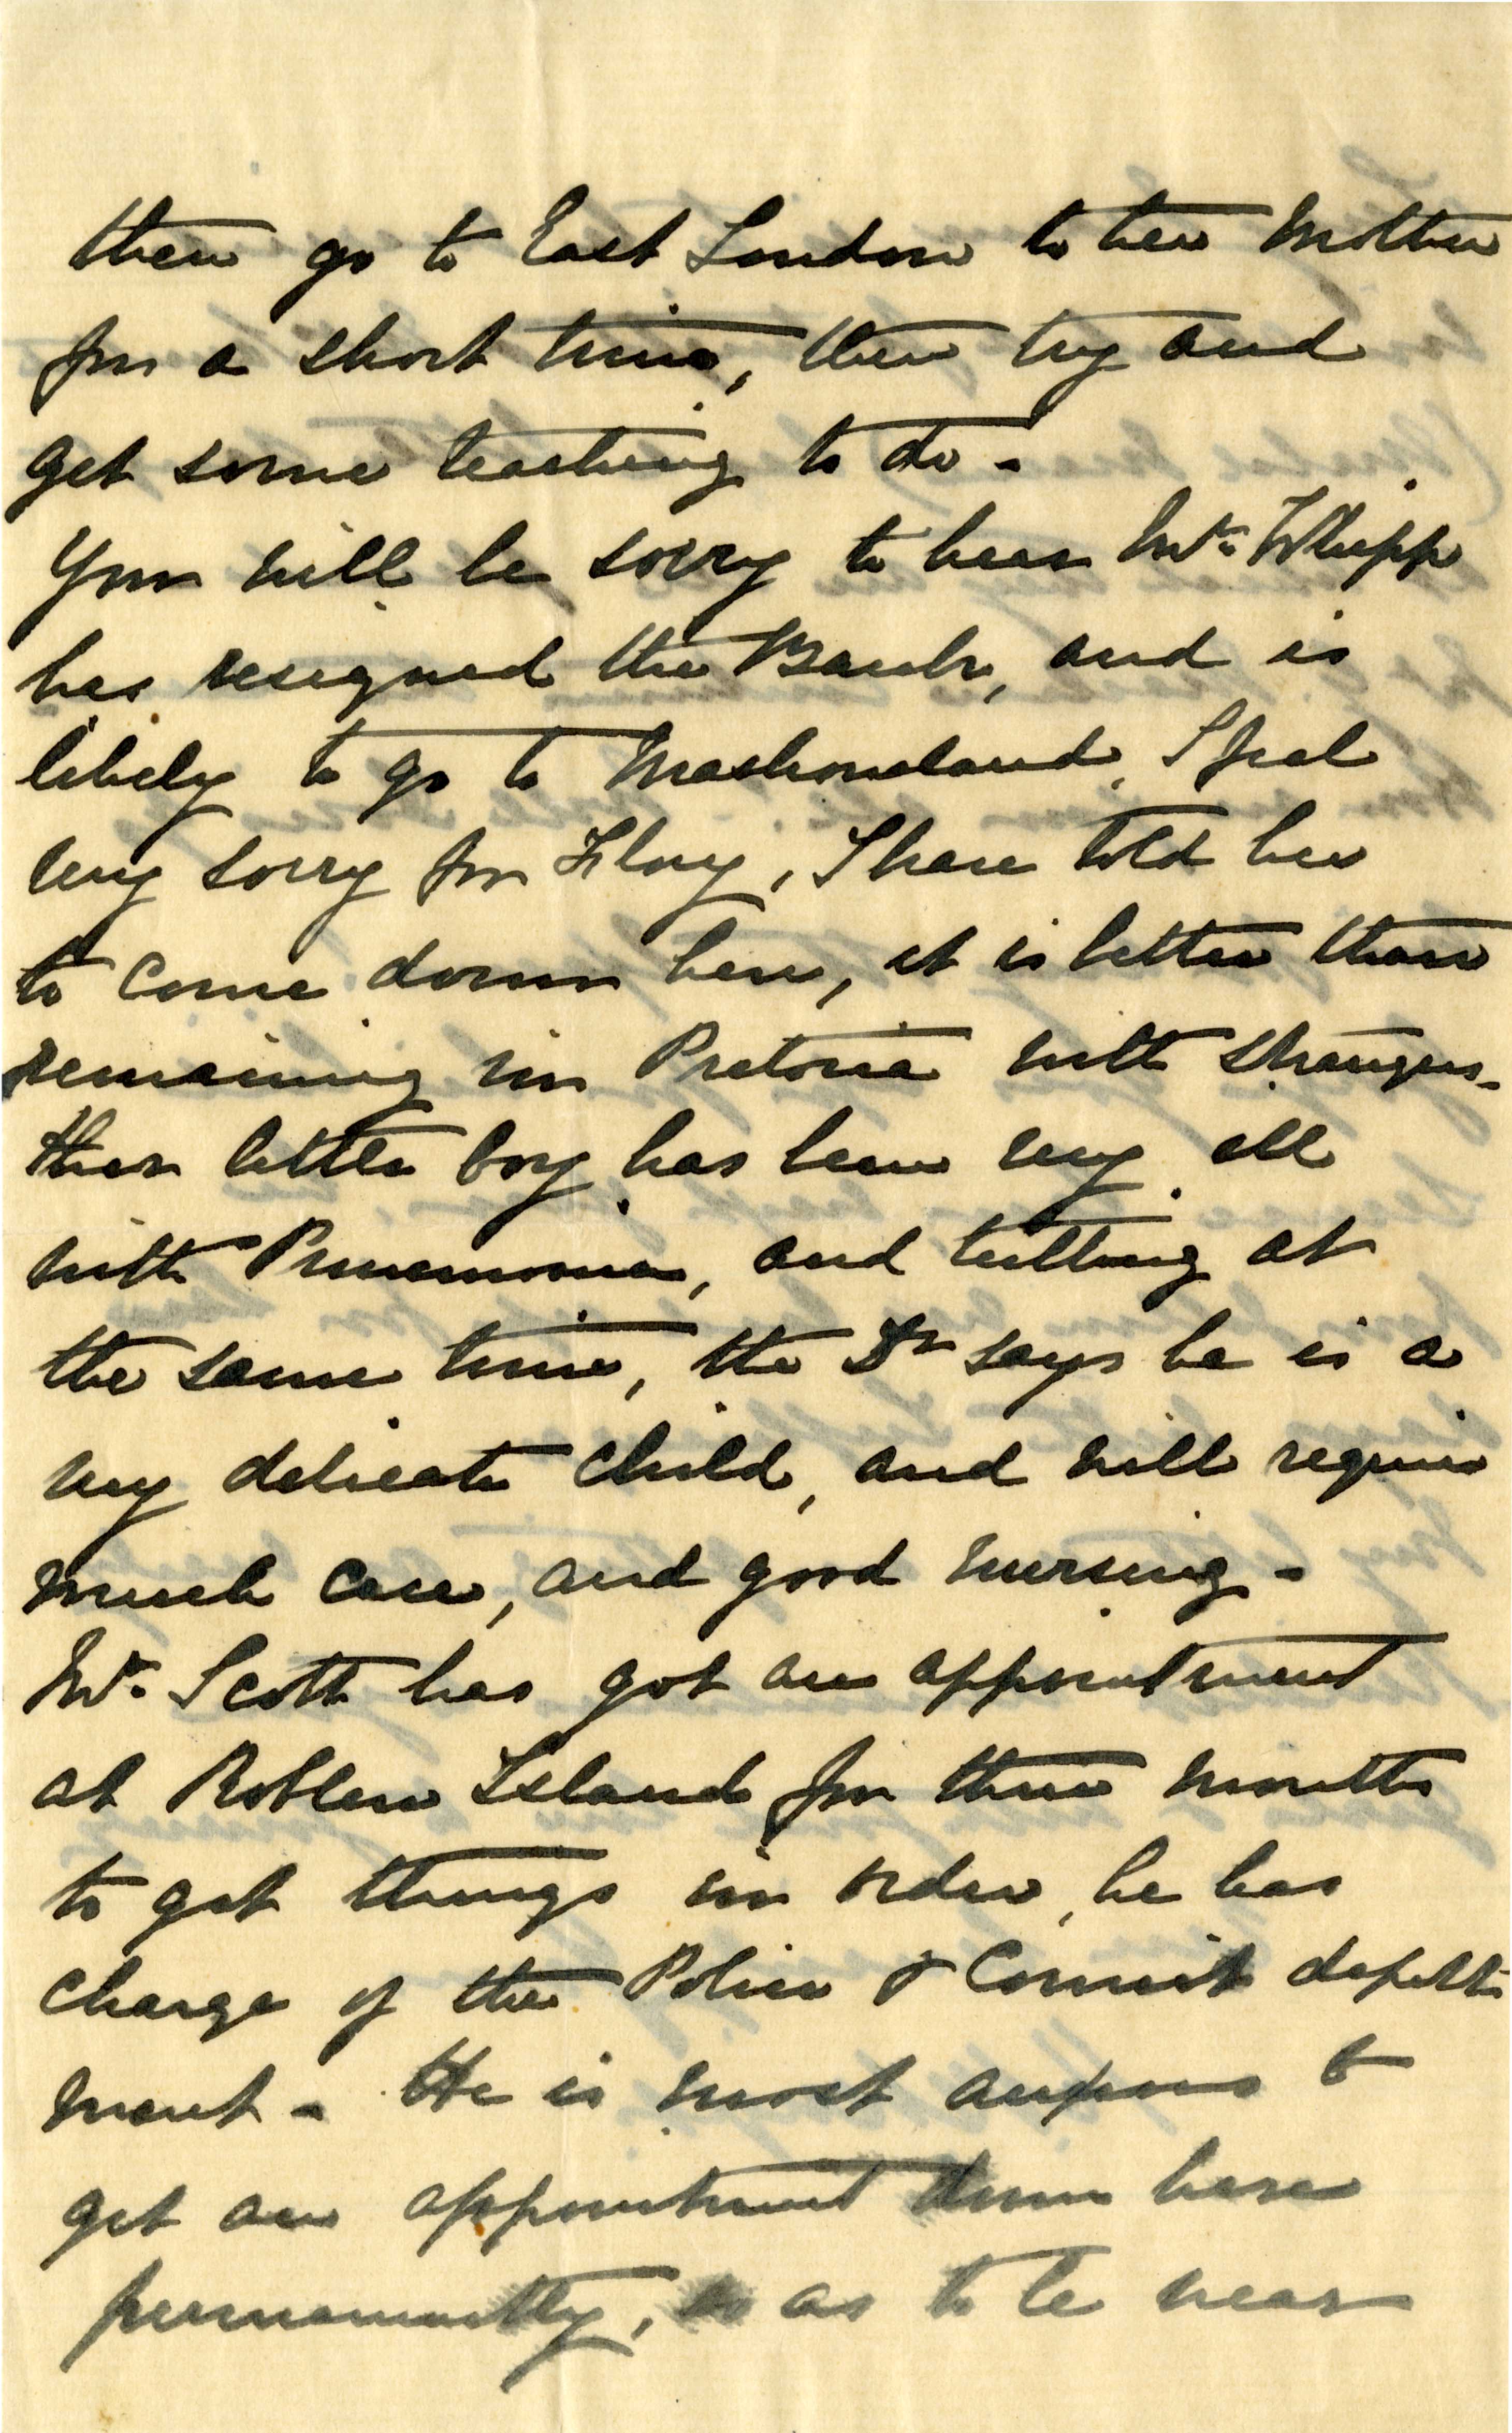 then go to East London to her Mother
for a short time, then try and
get some teaching to do -
You will be sorry to hear Mr. Whipp
has resigned the Bank, and is
likely to go to Mashonaland, I feel
very sorry for Flory, I have told her
to come down here, it is better than
remaining in Pretoria with strangers -
their little boy has been very ill
with Pneumonia, and teething at
the same time, the Dr says he is a
very delicate child, and will require
much care, and good nursing -
Mr. Scott has got an appointment
at Robben Island for three months
to get things in order, he has
charge of the Police & Convict depart-
ment - He is most anxious to
get an appointment down here
permanently, so as to be near